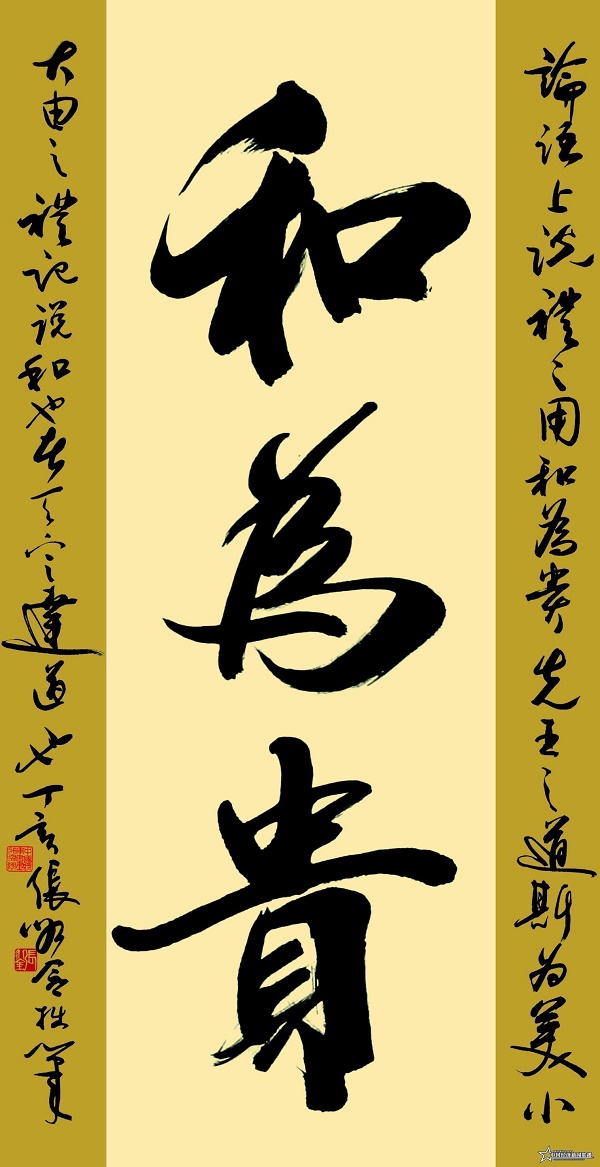 和為貴
論語上説禮之用和為貴先王之道斯為美小
大由之禮記説和也者天下之達道也丁亥張
拙筆